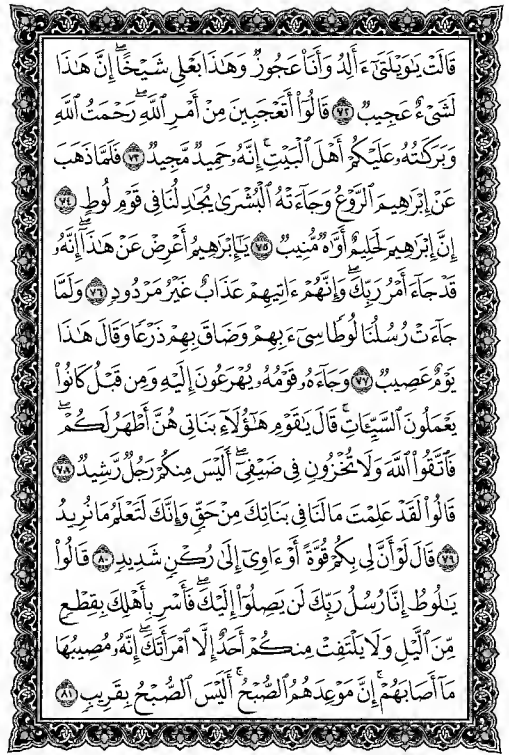 قَالَتْ يَـٰوَيْلَتَىٰٓ ءَأَلِدُ وَأَنَا۠ عَجُوزٌ وَهَـٰذَا بَعْلِى شَيْخًا ۖ إِنَّ هَـٰذَا
لَشَىْءٌ عَجِيبٌ ۝٧٢ قَالُوٓا۟ أَتَعْجَبِينَ مِنْ أَمْرِ ٱللَّهِ ۖ رَحْمَتُ ٱللَّهِ
وَبَرَكَـٰتُهُۥ عَلَيْكُمْ أَهْلَ ٱلْبَيْتِ ۚ إِنَّهُۥ حَمِيدٌ مَّجِيدٌ ۝٧٣ فَلَمَّا ذَهَبَ
عَنْ إِبْرَٰهِيمَ ٱلرَّوْعُ وَجَآءَتْهُ ٱلْبُشْرَىٰ يُجَـٰدِلُنَا فِى قَوْمِ لُوطٍ ۝٧٤
إِنَّ إِبْرَٰهِيمَ لَحَلِيمٌ أَوَّٰهٌ مُّنِيبٌ ۝٧٥ يَـٰٓإِبْرَٰهِيمُ أَعْرِضْ عَنْ هَـٰذَآ ۖ إِنَّهُۥ
قَدْ جَآءَ أَمْرُ رَبِّكَ ۖ وَإِنَّهُمْ ءَاتِيهِمْ عَذَابٌ غَيْرُ مَرْدُودٍ ۝٧٦ وَلَمَّا
جَآءَتْ رُسُلُنَا لُوطًا سِىٓءَ بِهِمْ وَضَاقَ بِهِمْ ذَرْعًا وَقَالَ هَـٰذَا
يَوْمٌ عَصِيبٌ ۝٧٧ وَجَآءَهُۥ قَوْمُهُۥ يُهْرَعُونَ إِلَيْهِ وَمِن قَبْلُ كَانُوا۟
يَعْمَلُونَ ٱلسَّيِّـَٔاتِ ۚ قَالَ يَـٰقَوْمِ هَـٰٓؤُلَآءِ بَنَاتِى هُنَّ أَطْهَرُ لَكُمْ ۖ
فَٱتَّقُوا۟ ٱللَّهَ وَلَا تُخْزُونِ فِى ضَيْفِىٓ ۖ أَلَيْسَ مِنكُمْ رَجُلٌ رَّشِيدٌ ۝٧٨
قَالُوا۟ لَقَدْ عَلِمْتَ مَا لَنَا فِى بَنَاتِكَ مِنْ حَقٍّ وَإِنَّكَ لَتَعْلَمُ مَا نُرِيدُ
۝٧٩ قَالَ لَوْ أَنَّ لِى بِكُمْ قُوَّةً أَوْ ءَاوِىٓ إِلَىٰ رُكْنٍ شَدِيدٍ ۝٨٠ قَالُوا۟
يَـٰلُوطُ إِنَّا رُسُلُ رَبِّكَ لَن يَصِلُوٓا۟ إِلَيْكَ ۖ فَأَسْرِ بِأَهْلِكَ بِقِطْعٍ
مِّنَ ٱلَّيْلِ وَلَا يَلْتَفِتْ مِنكُمْ أَحَدٌ إِلَّا ٱمْرَأَتَكَ ۖ إِنَّهُۥ مُصِيبُهَا
مَآ أَصَابَهُمْ ۚ إِنَّ مَوْعِدَهُمُ ٱلصُّبْحُ ۚ أَلَيْسَ ٱلصُّبْحُ بِقَرِيبٍ ۝٨١